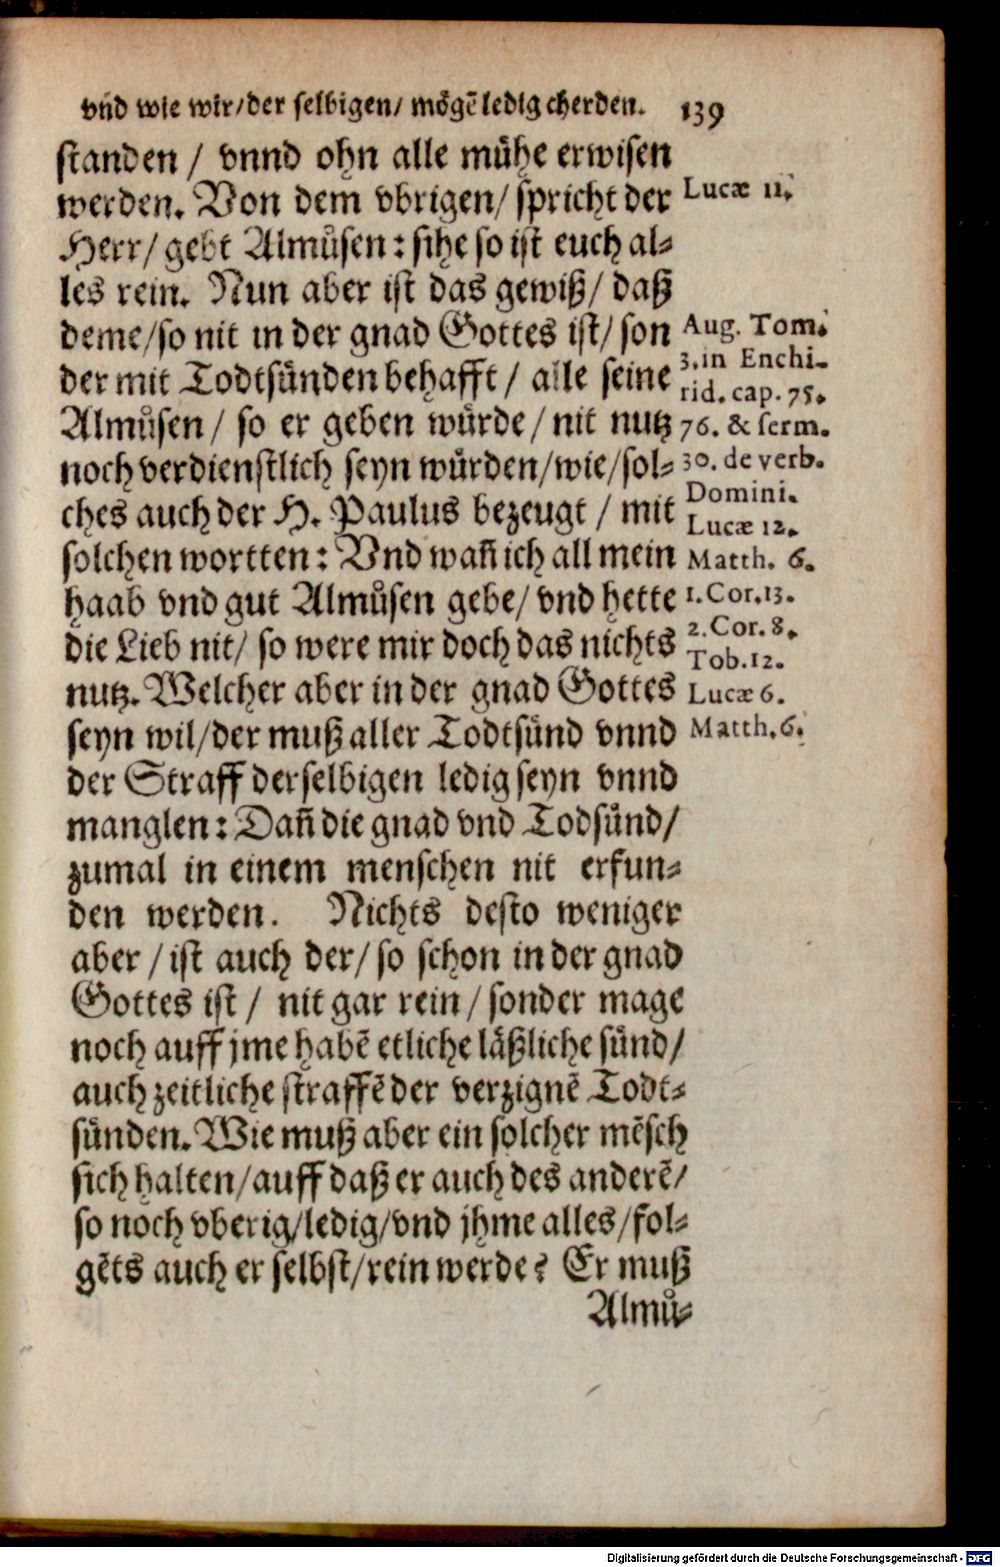 vnd wie wir/der selbigen/ mögē ledig cherden. 139
standen / vnnd ohn alle mühe erwisen
werden. Von dem vbrigen/ spricht der
Herr/ gebt Almůsen: sihe so ist euch al-
les rein. Nun aber ist das gewiß/ daß
deme/so nit in der gnad Gottes ist/ son
der mit Todtsünden behafft / alle seine
Almůsen / so er geben würde/ nit nutz
noch verdienstlich seyn würden/wie/sol-
ches auch der H. Paulus bezeugt / mit
solchen wortten: Vnd wañ ich all mein
haab vnd gut Almůsen gebe/ vnd hette
die Lieb nit/ so were mir doch das nichts
nutz. Welcher aber in der gnad Gottes
seyn wil/der muß aller Todtsünd vnnd
der Straff derselbigen ledig seyn vnnd
manglen: Dañ die gnad vnd Todsünd/
zumal in einem menschen nit erfun-
den werden. Nichts desto weniger
aber / ist auch der/ so schon in der gnad
Gottes ist / nit gar rein / sonder mage
noch auff jme habē etliche läßliche sünd/
auch zeitliche straffē der verzignē Todt-
sünden. Wie muß aber ein solcher mēsch
sich halten/auff daß er auch des anderē/
so noch vberig/ledig/vnd jhme alles/fol-
gēts auch er selbst/rein werde? Er muß
Almů-
Lucæ 11.
Aug. Tom.
3. in Enchi-
rid. cap. 75.
76. & serm.
30. de verb.
Domini.
Lucæ 12.
Matth. 6.
1. Cor. 13.
2. Cor. 8.
Tob. 12.
Lucæ 6.
Matth. 6.
Digitalisierung gefördert durch die Deutsche Forschungsgemeinschaft - DFG